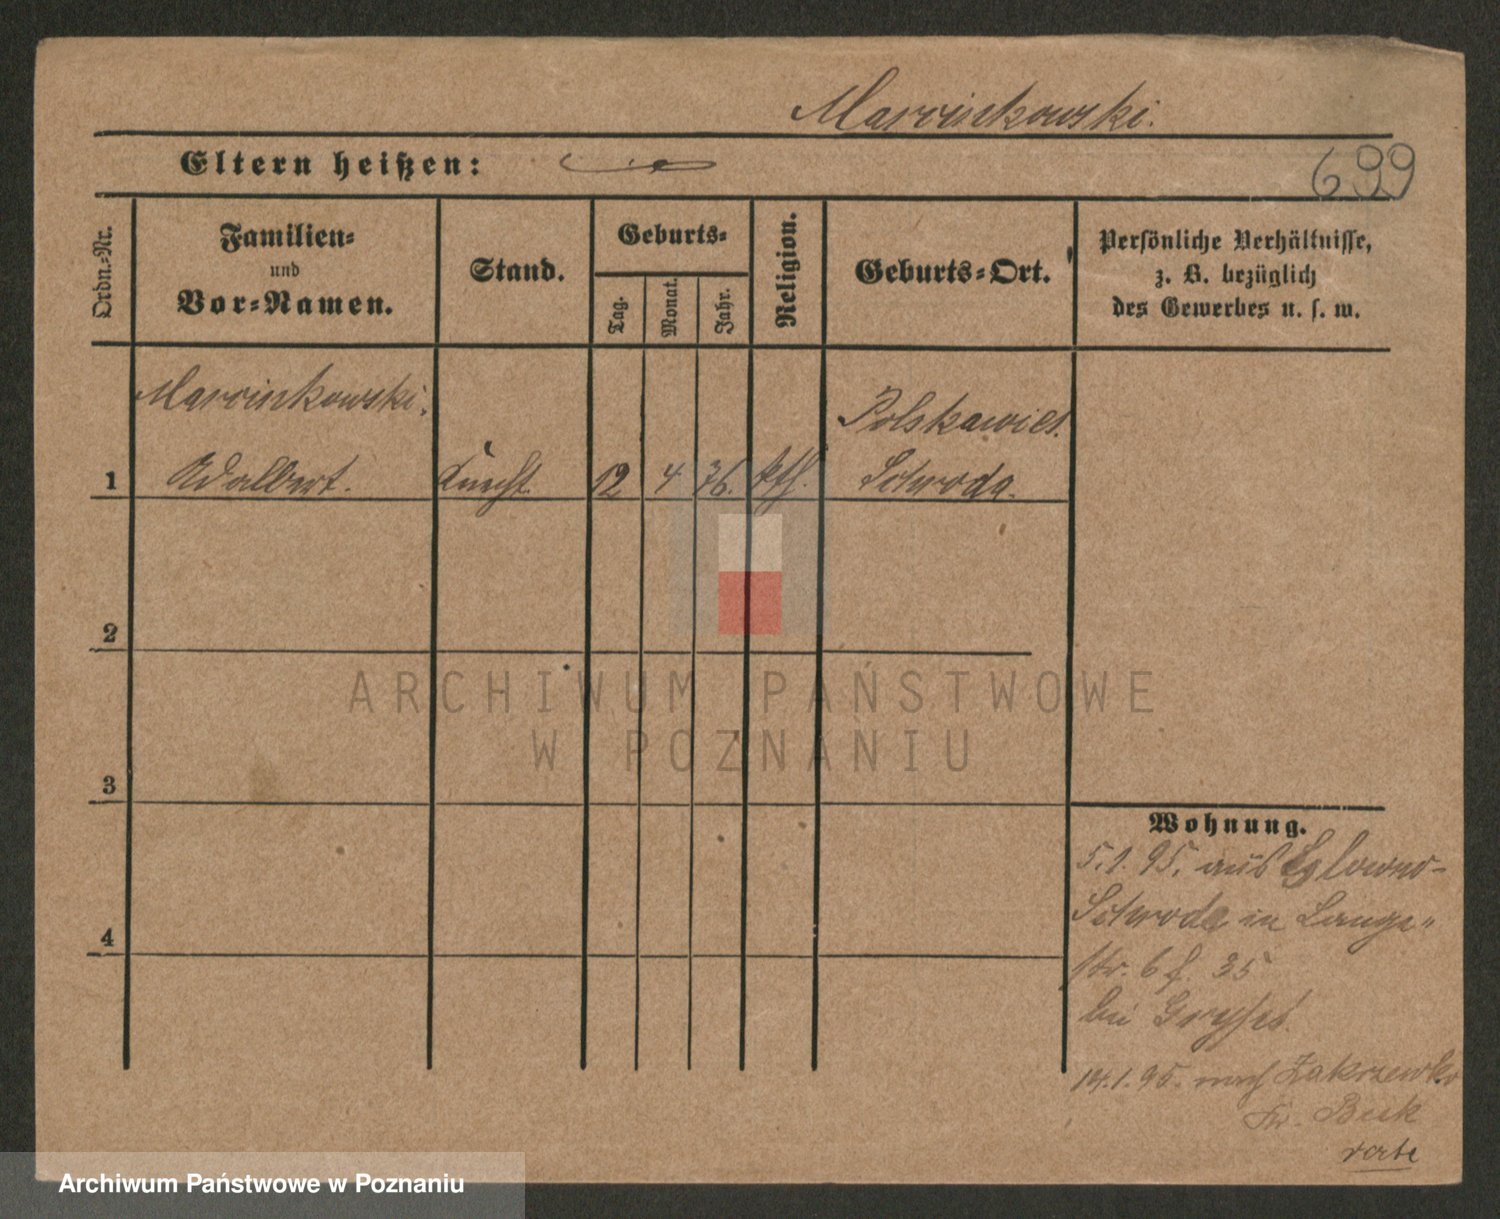 Marcinkowski.
Eltern heißen:
699
Ordn.-Nr.
Familien-
und
Vor-Namen.
Stand.
Geburts-
Tag.
Monat.
Jahr.
Religion.
Geburts-Ort.
Persönliche Verhältnisse,
z. B. bezüglich
des Gewerbes u. s. w.
1
Marcinkowski.
Adalbert.
Knecht.
12
4
76.
kth.
Polskawies.
Schroda.
2
3
4
ARCHIWUM PAŃSTWOWE
W POZNANIU
Wohnung.
5.1.95. aus
Schroda in Lange-
str. 6 f. 35
bei
14.1.95. nach Zakrzewko
Kr. Buk
verte
Archiwum Państwowe w Poznaniu